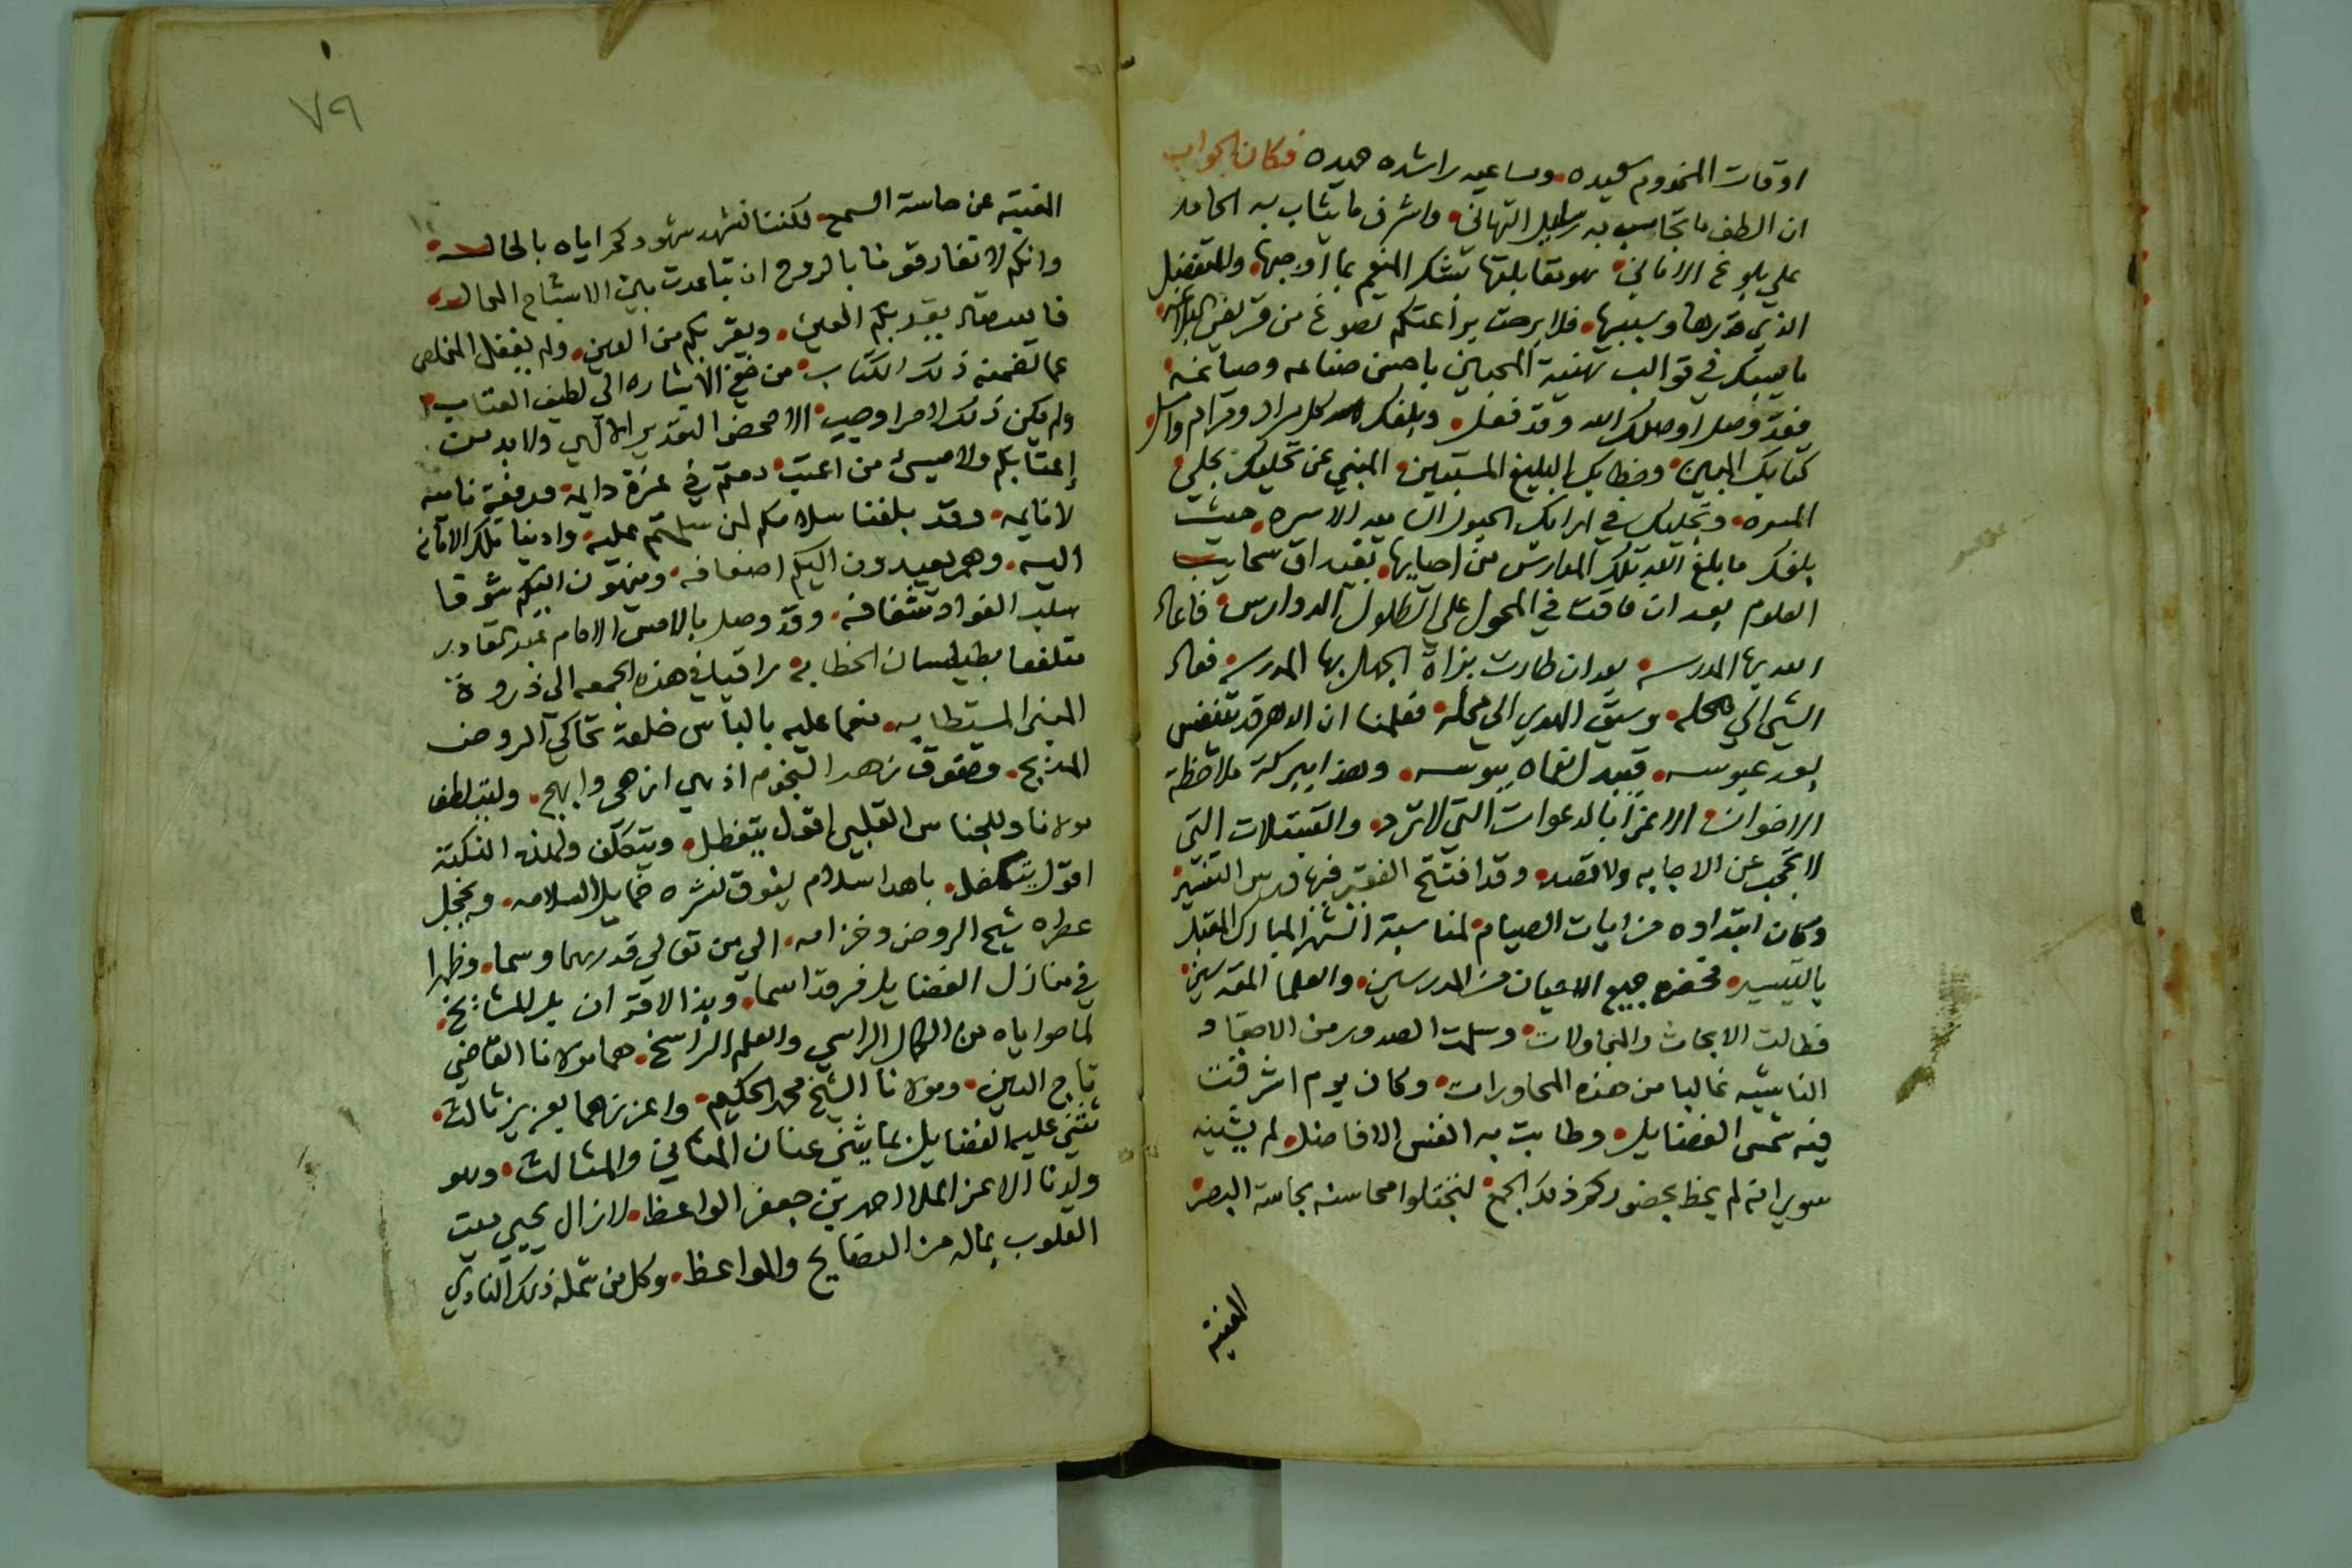 اوقات المخدوم سعيده. ومساعيه راشده حميده فكان الجواب
ان الطف ما تجاب به رسايل التهاني. واشرف ما يثاب به الحامد
علي بلوغ الاماني. هو مقابلتها بشكر المنعم بما اوجبها. والمتفضل
الذي قدرها وسببها. فلا برحت براعتكم تصوغ من قريض البراعه
ما يسبك في قوالب تهنية المحبين باحسن صناعه وصياغة.
فقد وصل اوصلك الله وقد فعل. وبلغك الله كل مراد ومرام وامل.
كتابك المبين. وخطابك البليغ المستبين. المنبي عن تحليك بحلي
المسره. وتجليك في ارايك الحبور ان بعد الاسره. حيث
بلغك ما بلغ الله تلك المدارس من احيايها. بغيداق سحايب
العلوم بعد ان فاقت في المحول علي الطلول الدوارس. فاعاد
الله بها المدرسه. بعد ان طارت بزاة الجهل بها المدرسه. فعاد
الشي الي محله. وسيق الهدي الي محله. فعلمنا ان الدهر قد تنفس
بعد عبوسه. فتبدل نعماه ببوسه. وهذا ببركة ملاحظة
الاخوان الاعزا بالدعوات التي لا ترد. والتبتلات التي
لا تحجب عن الاجابه ولا تصد. وقد افتتح الفقير فيها درس التفسير
وكان ابتداوه من ايات الصيام. لمناسبة الشهر المبارك المقبل
بالتيسير. فحضره جميع الاعيان من المدرسين. والعلما المقدسين.
فطالت الابحاث والمجاولات. وسلمت الصدور من الاحقاد
الناشيه غالبا من هذه المحاورات. وكان يوم اشرقت
فيه شمس الفضايل. وطابت به انفس الافاضل. لم يشينه
سوي انه لم يحظ بحضوركم ذلك الجمع. لتجتلوا محاسنه بحاسة البصر
الغنية
٧٩
الغنية عن حاسة السمع. لكننا نشهد شهودكم اياه بالحاله.
وانكم لا تفارقونا بالروح ان تباعدت بين الاشباح المحاله.
فالله تعالي يقر بكم العين. ويقربكم من العين. ولم يغفل المخلص
عما تضمنه ذلك الكتاب. من خفي الاشاره الي لطيف العتاب.
ولم يكن ذلك لامر اوجب. الا محض التقدير الالهي ولا بد من
إعتابكم ولا ميسئ من اعتب. دمتم في عزة دايمه. ورفعة ناميه
لا نايمه. وقد بلغنا سلامكم لمن سلمتم عليه. وادينا تلك الامانه
اليه. وهم يعيدون اليكم اضعافه. وينهون اليكم شوقا
سلب الفواد شغافه. وقد وصل بالامس الامام عبد القادر
متلفعا بطيلسان الخطابه. راقيا في هذه الجمعه الي ذروة
المنبر المستطابه. منعما عليه بالباس خلعة تحاكي الروض
المدبج. وتفوق زهر النجوم اذ هي ازهي وابهج. وليت لطف
مولانا وللجناس القلبي اقول يتفظل. ويتكلف ولهذه النكتة
اقول يتكفل. باهدا سلام يفوق نشره خمايل السلامه. ويخجل
عطره شيح الروض وخزامه. الي من تعالي قدرهما وسما. وظهرا
في منازل الفضايل فرقدا سما. وبذا الاقتران بل للمشايخ.
لما حوياه من الكمال الراسي والعلم الراسخ. هما مولانا القاضي
تاج الدين. ومولانا الشيخ محمد الحكيم. واعززهما بعزيز ثالث.
تثني عليه الفضايل بما يثني عنان المثاني والمثالث. وهو
ولدنا الاعز الملا احمد بن جعفر الواعظ. لازال يحيي ميت
القلوب بماله من النصايح والمواعظ. وكل من شمله ذلك النادي